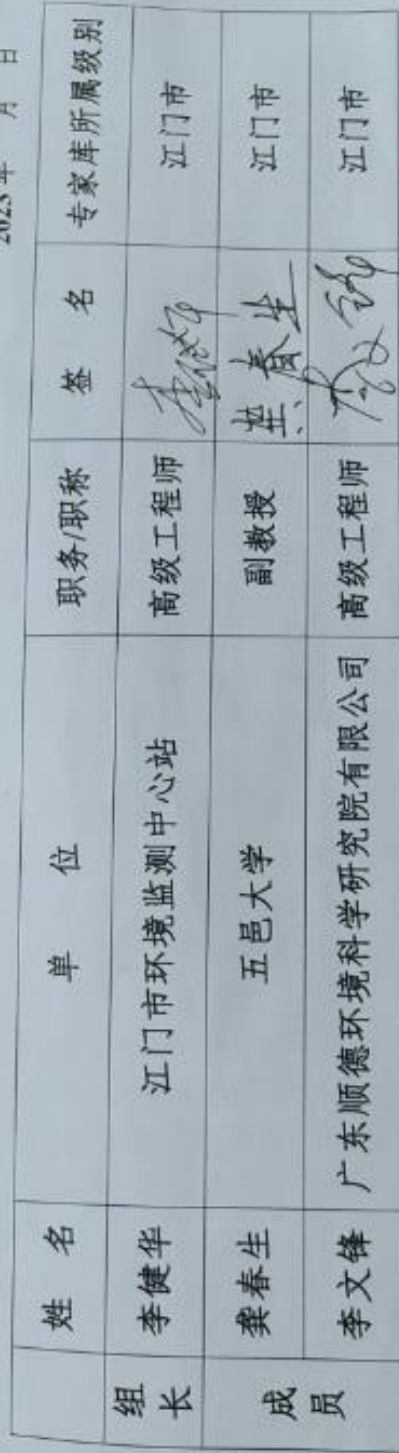 2023年 月 日
姓 名 单 位 职务/职称 签 名 专家库所属级别
组长 李健华 江门市环境监测中心站 高级工程师 李健华 江门市
成员 龚春生 五邑大学 副教授 龚春生 江门市
李文锋 广东顺德环境科学研究院有限公司 高级工程师 李文锋 江门市